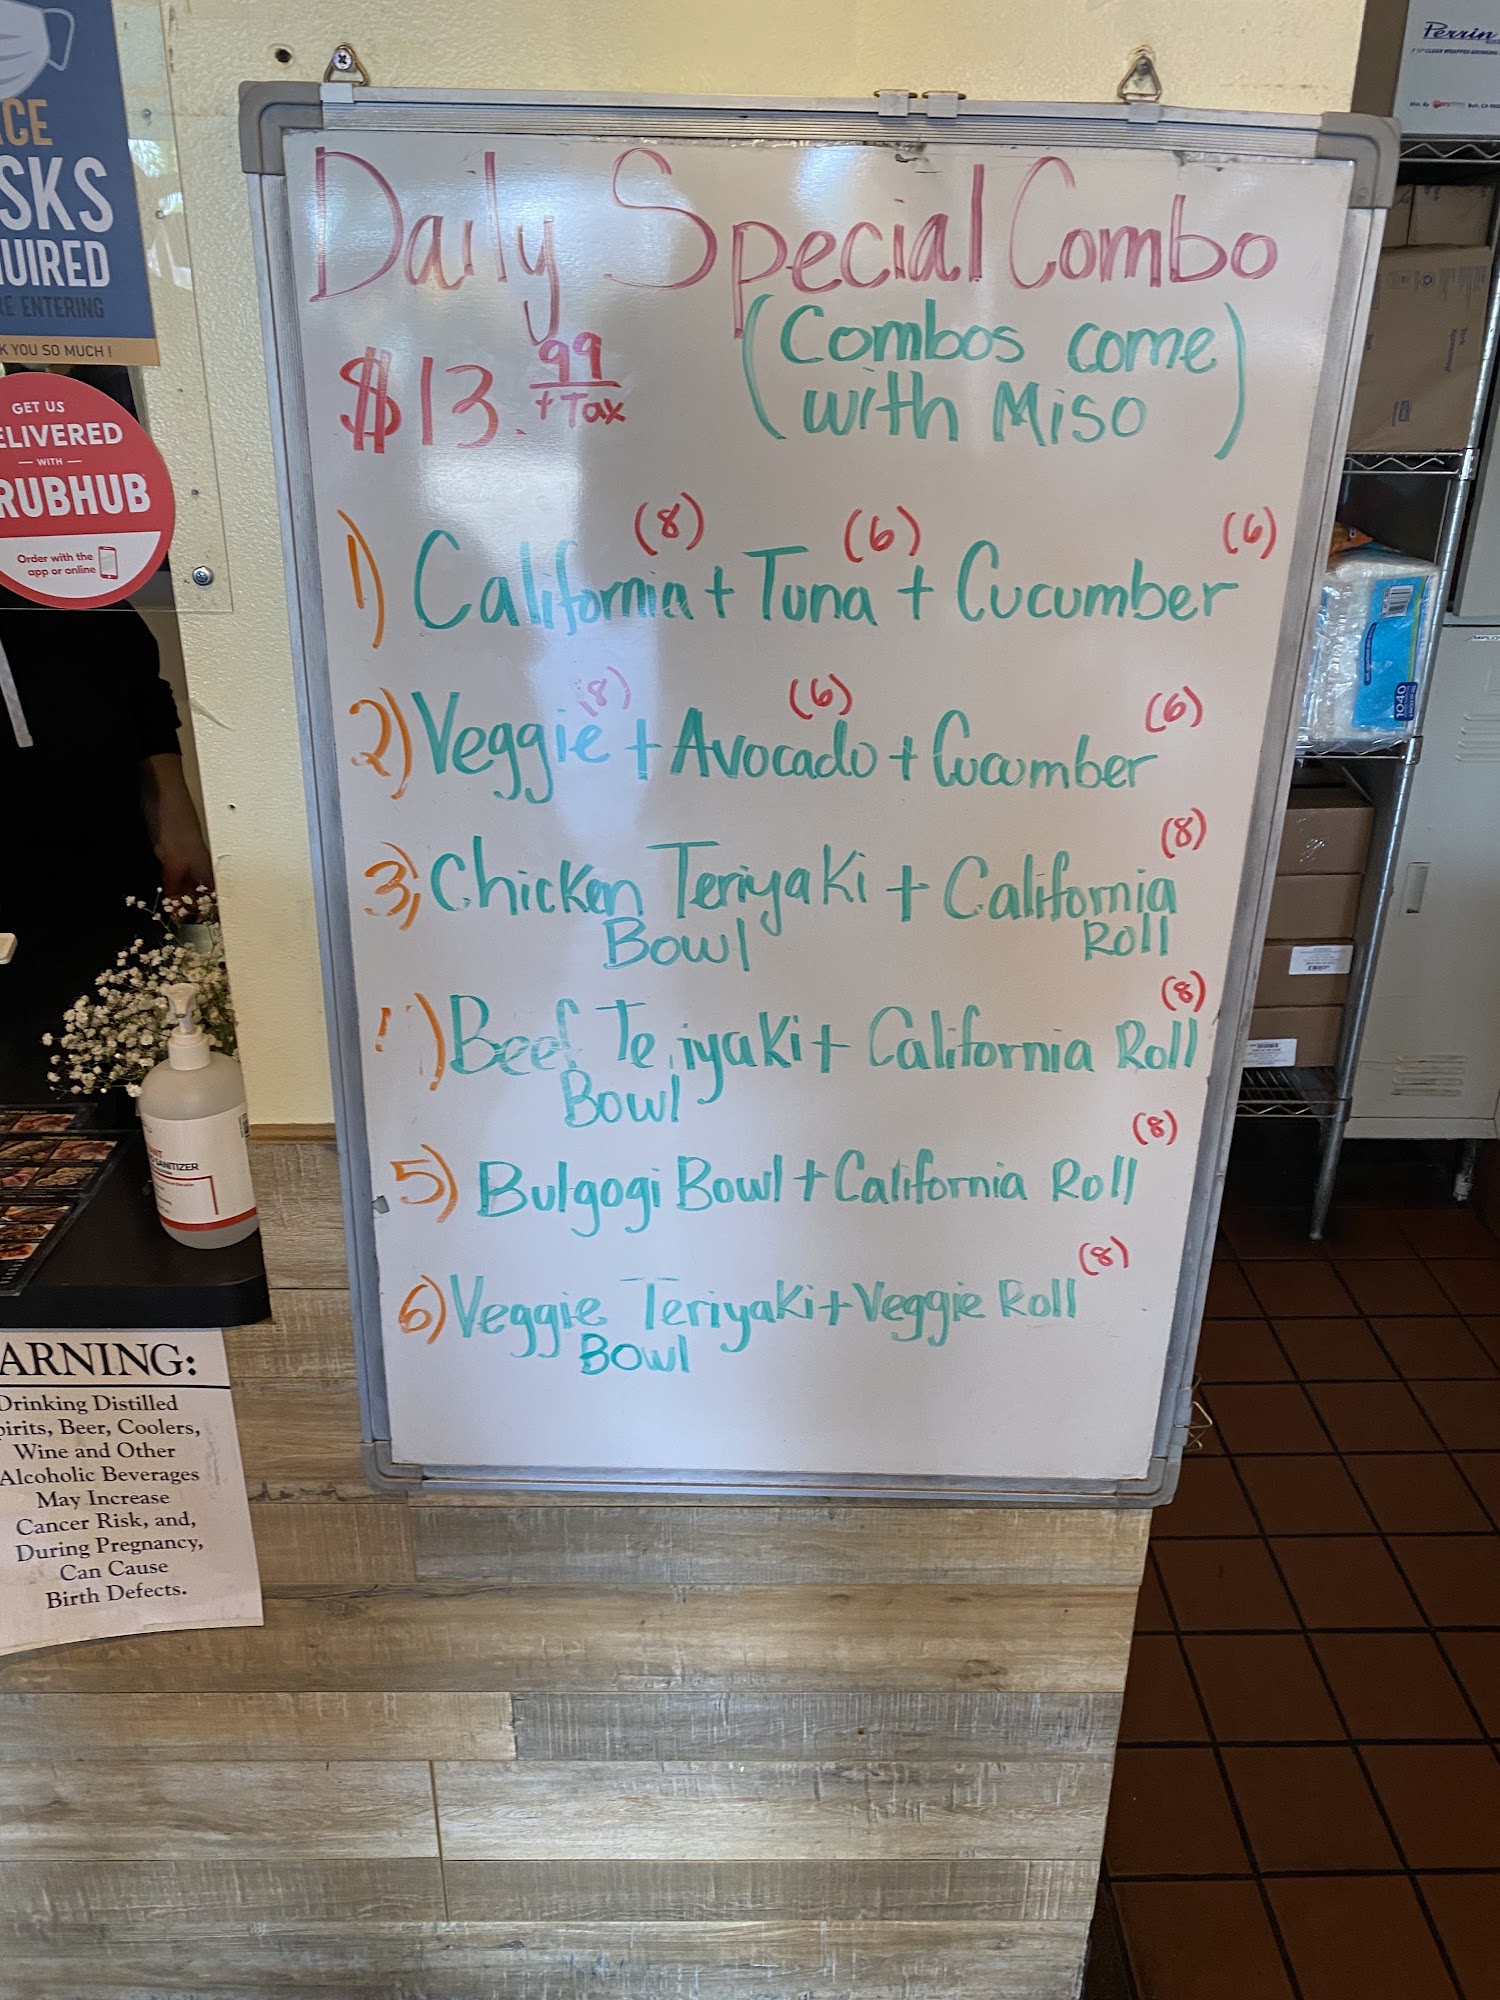 Daily Special Combo
$13.99
+ Tax
(Combos come
with Miso)
(8) (6) (6)
1) California + Tuna + Cucumber
(8) (6) (6)
2) Veggie + Avocado + Cucumber
(8)
3) Chicken Teriyaki + California
Bowl Roll
(8)
4) Beef Teriyaki + California Roll
Bowl
(8)
5) Bulgogi Bowl + California Roll
(8)
6) Veggie Teriyaki + Veggie Roll
Bowl
CE
SKS
UIRED
RE ENTERING
K YOU SO MUCH !
GET US
ELIVERED
— WITH —
RUBHUB
Order with the
app or online
SANITIZER
ARNING:
Drinking Distilled
pirits, Beer, Coolers,
Wine and Other
Alcoholic Beverages
May Increase
Cancer Risk, and,
During Pregnancy,
Can Cause
Birth Defects.
Perrin
1040